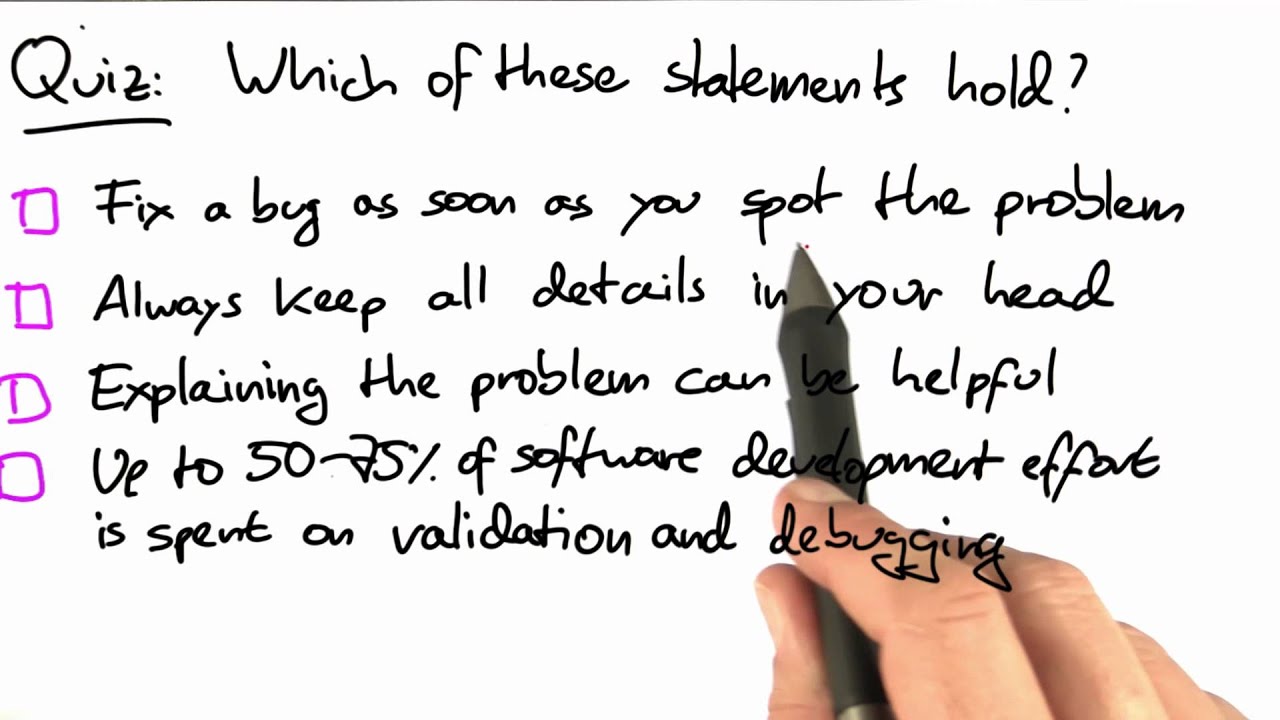 Quiz: Which of these statements hold?
Fix a bug as soon as you spot the problem
Always keep all details in your head
Explaining the problem can be helpful
Up to 50-75% of software development effort
is spent on validation and debugging